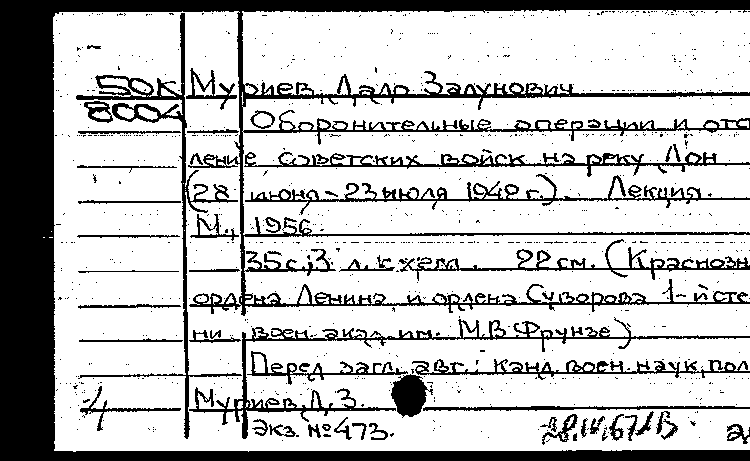 50К Муриев, Дадо Залунович
8004 Оборонительные операции и отс
ление советских войск на реку Дон
(28 июня - 23 июля 1942 г.). Лекция.
М., 1956.
35 с.; 3 л. схем. 22 см. (Краснозн
ордена Ленина и ордена Суворова 1-й сте
ни воен. акад. им. М.В. Фрунзе)
Перед загл. авт.: канд. воен. наук, пол
Муриев, Д. З.
Экз. № 473.